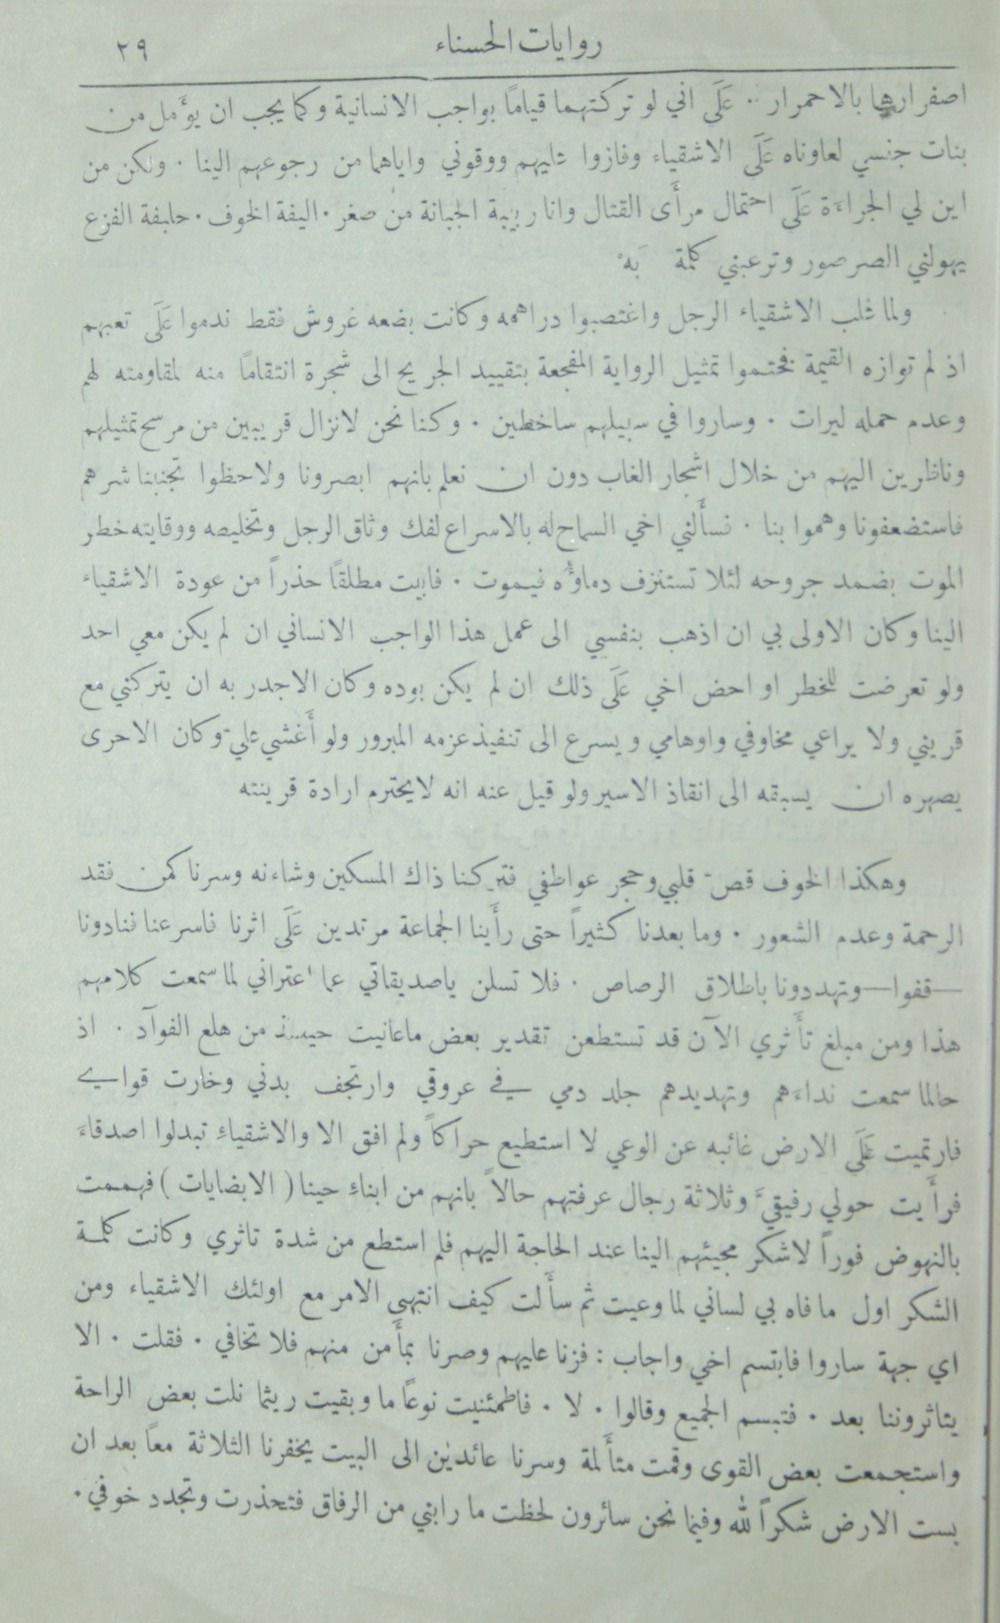 روايات الحسناء
٢٩
اصفرارها بالاحمرار .. عَلَى اني لو تركتهما قياماً بواجب الانسانية وكما يجب ان يؤَمل من
بنات جنسي لعاوناه عَلَى الاشقياء وفازوا عليهم ووقوني واياهما من رجوعهم الينا . ولكن من
اين لي الجراءَة عَلَى احتمال مرأَى القتال وانا ربيبة الجبانة من صغر . اليفة الخوف . حليفة الفزع
يهولني الصرصور وترعبني كلمة بَهْ
ولما غلب الاشقياء الرجل واغتصبوا دراهمه وكانت بضعه غروش فقط ندموا عَلَى تعبهم
اذ لم توازه القيمة فختموا تمثيل الرواية المفجعة بتقييد الجريح الى شجرة انتقاماً منه لمقاومته لهم
وعدم حمله ليرات . وساروا في سبيلهم ساخطين . وكنا نحن لانزال قريبين من مرسح تمثيلهم
وناظرين اليهم من خلال اشجار الغاب دون ان نعلم بانهم ابصرونا ولاحظوا تجنبنا شرهم
فاستضعفونا وهموا بنا . فسأَلني اخي السماح له بالاسراع لفك وثاق الرجل وتخليصه ووقايته خطر
الموت بضمد جروحه لئلا تستنزف دماؤُه فيموت . فابيت مطلقاً حذراً من عودة الاشقياء
الينا وكان الاولى بي ان اذهب بنفسي الى عمل هذا الواجب الانساني ان لم يكن معي احد
ولو تعرضت للخطر او احض اخي عَلَى ذلك ان لم يكن بوده وكان الاجدر به ان يتركني مع
قريني ولا يراعي مخاوفي واوهامي ويسرع الى تنفيذ عزمه المبرور ولو أَغشي علي وكان الاحرى
بصهره ان يسبقه الى انقاذ الاسير ولو قيل عنه انه لايحترم ارادة قرينته
وهكذا الخوف قصَّ قلبي وحجر عواطفي فتركنا ذاك المسكين وشاءنه وسرنا كمن فقد
الرحمة وعدم الشعور . وما بعدنا كثيراً حتى رأَينا الجماعة مرتدين عَلَى اثرنا فاسرعنا فنادونا
—قفوا— وتهددونا باطلاق الرصاص . فلا تسلن ياصديقاتي عما اعتراني لما سمعت كلامهم
هذا ومن مبلغ تأَثري الآن قد تستطعن تقدير بعض ماعانيت حينئذ من هلع الفوآد . اذ
حالما سمعت نداءَهم وتهديدهم جلد دمي في عروقي وارتجف بدني وخارت قواي
فارتميت عَلَى الارض غائبه عن الوعي لا استطيع حراكاً ولم افق الا والاشقياءِ تبدلوا اصدقاءَ
فرأَيت حولي رفيقيَّ وثلاثة رجال عرفتهم حالاً بانهم من ابناءِ حينا ( الابضايات ) فهممت
بالنهوض فوراً لاشكر مجيئهم الينا عند الحاجة اليهم فلم استطع من شدة تاثري وكانت كلمة
الشكر اول ما فاه بي لساني لما وعيت ثم سأَلت كيف انتهى الامر مع اولئك الاشقياء ومن
اي جهة ساروا فابتسم اخي واجاب : فزنا عليهم وصرنا بمأَمن منهم فلا تخافي . فقلت . الا
يتاثروننا بعد . فتبسم الجميع وقالوا . لا . فاطمئنيت نوعاً ما وبقيت ريثما نلت بعض الراحة
واستجمعت بعض القوى وقمت متأَلمة وسرنا عائدين الى البيت يخفرنا الثلاثة معاً بعد ان
بست الارض شكراً لله وفيما نحن سائرون لحظت ما رابني من الرفاق فتحذرت وتجدد خوفي .